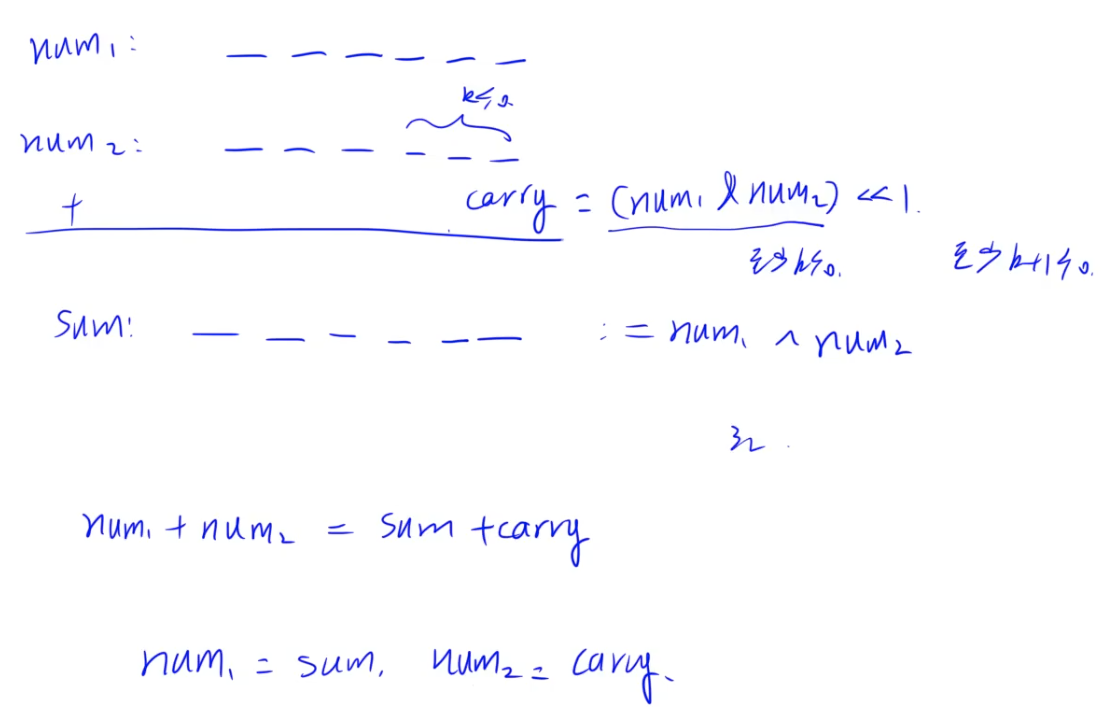 num₁: — — — — — —
k个0
num₂: — — — — — —
+ carry = (num₁ & num₂) << 1.
至少k个0. 至少k+1个0.
Sum: — — — — — — := num₁ ^ num₂
32.
num₁ + num₂ = sum + carry
num₁ = sum, num₂ = carry.